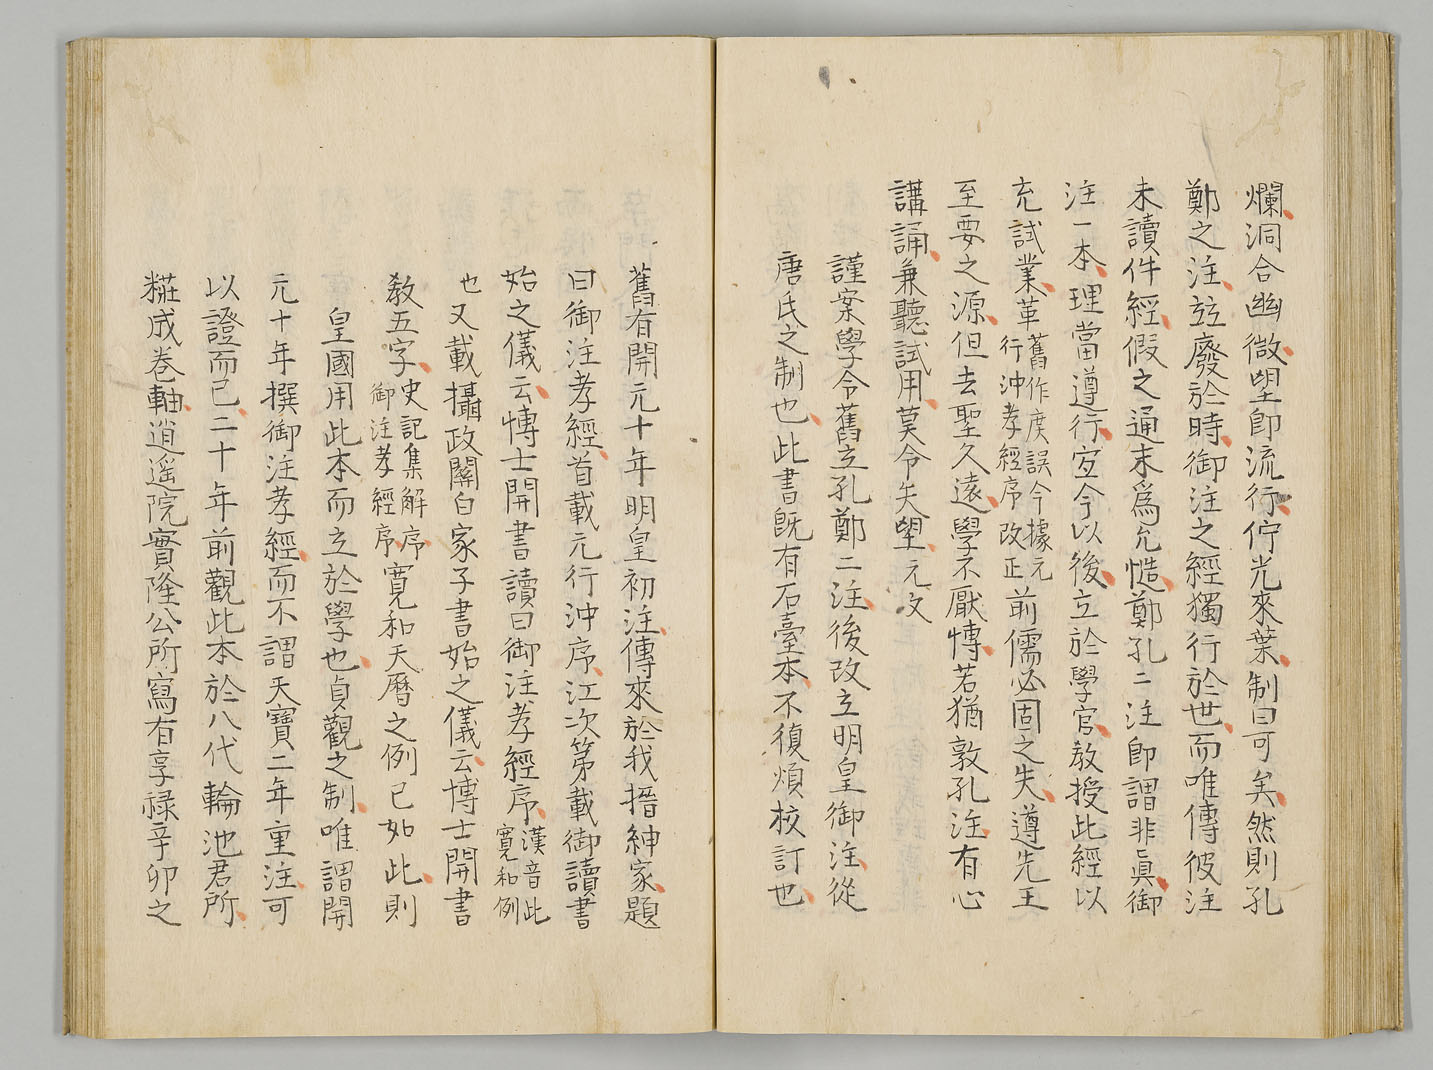 爛洞合幽微望即流行佇光來葉制曰可矣然則孔
鄭之注竝廢於時御注之經獨行於世而唯傳彼注
未讀件經假之通末爲允愜鄭孔二注即謂非眞御
注一本理當遵行宜今以後立於學官教授此經以
充試業革舊作廣誤今據元
行沖孝經序改正前儒必固之失遵先王
至要之源但去聖久遠學不厭博若猶敦孔注有心
講誦兼聽試用莫令失望元文
謹案學令舊立孔鄭二注後改立明皇御注從
唐氏之制也此書既有石臺本不復煩校訂也
舊有開元十年明皇初注傳來於我搢紳家題
曰御注孝經首載元行沖序江次第載御讀書
始之儀云博士開書讀曰御注孝經序漢音此
寬和例
也又載攝政關白家子書始之儀云博士開書
教五字史記集解序
御注孝經序寬和天曆之例已如此則
皇國用此本而立於學也貞觀之制唯謂開
元十年撰御注孝經而不謂天寶二年重注可
以證而已二十年前觀此本於八代輪池君所
糚成卷軸逍遥院實隆公所寫有享祿辛卯之